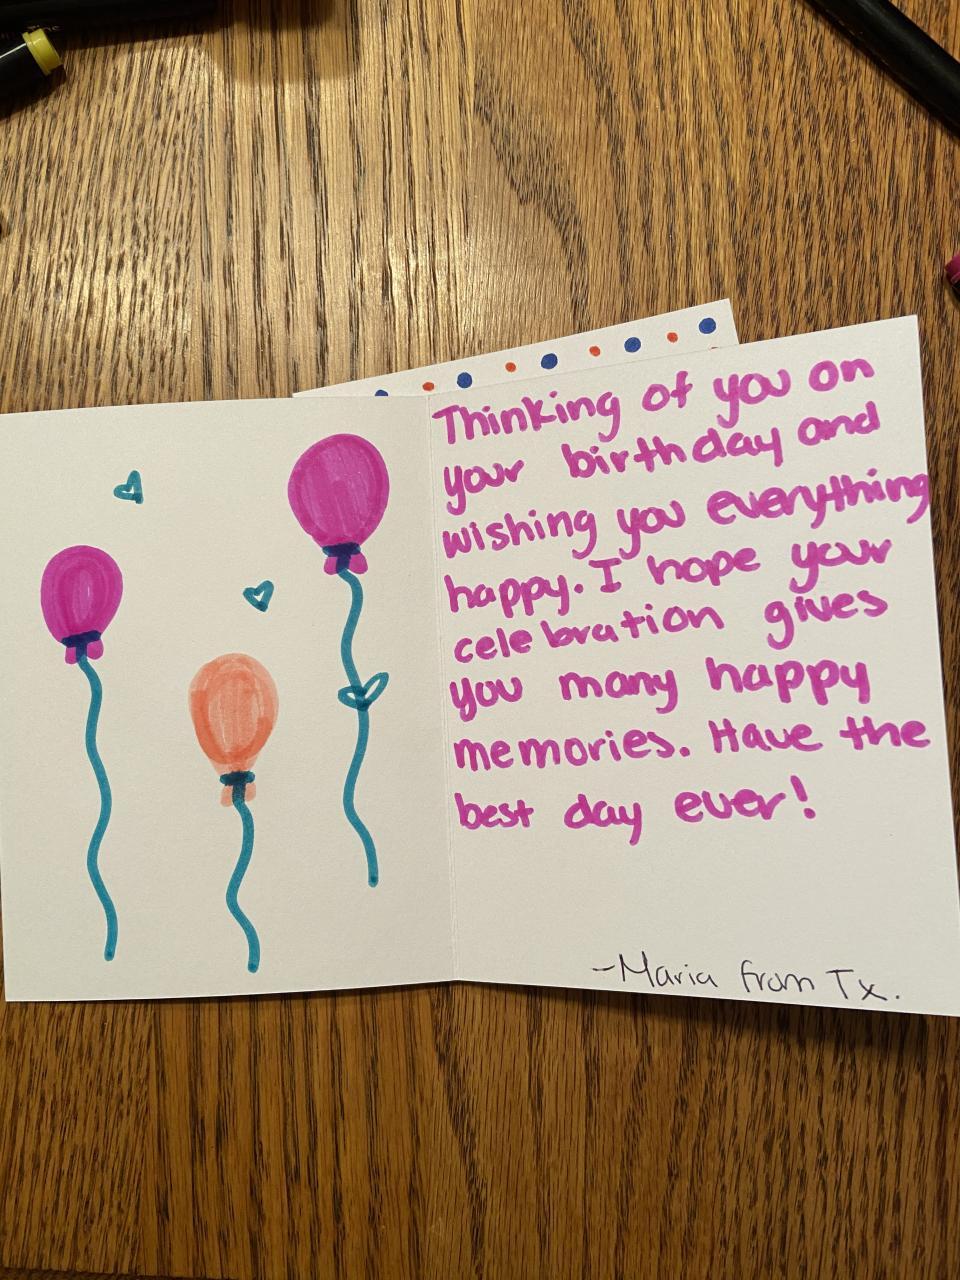 Thinking of you on
your birthday and
wishing you everything
happy. I hope your
celebration gives
you many happy
memories. Have the
best day ever!
-Maria from Tx.